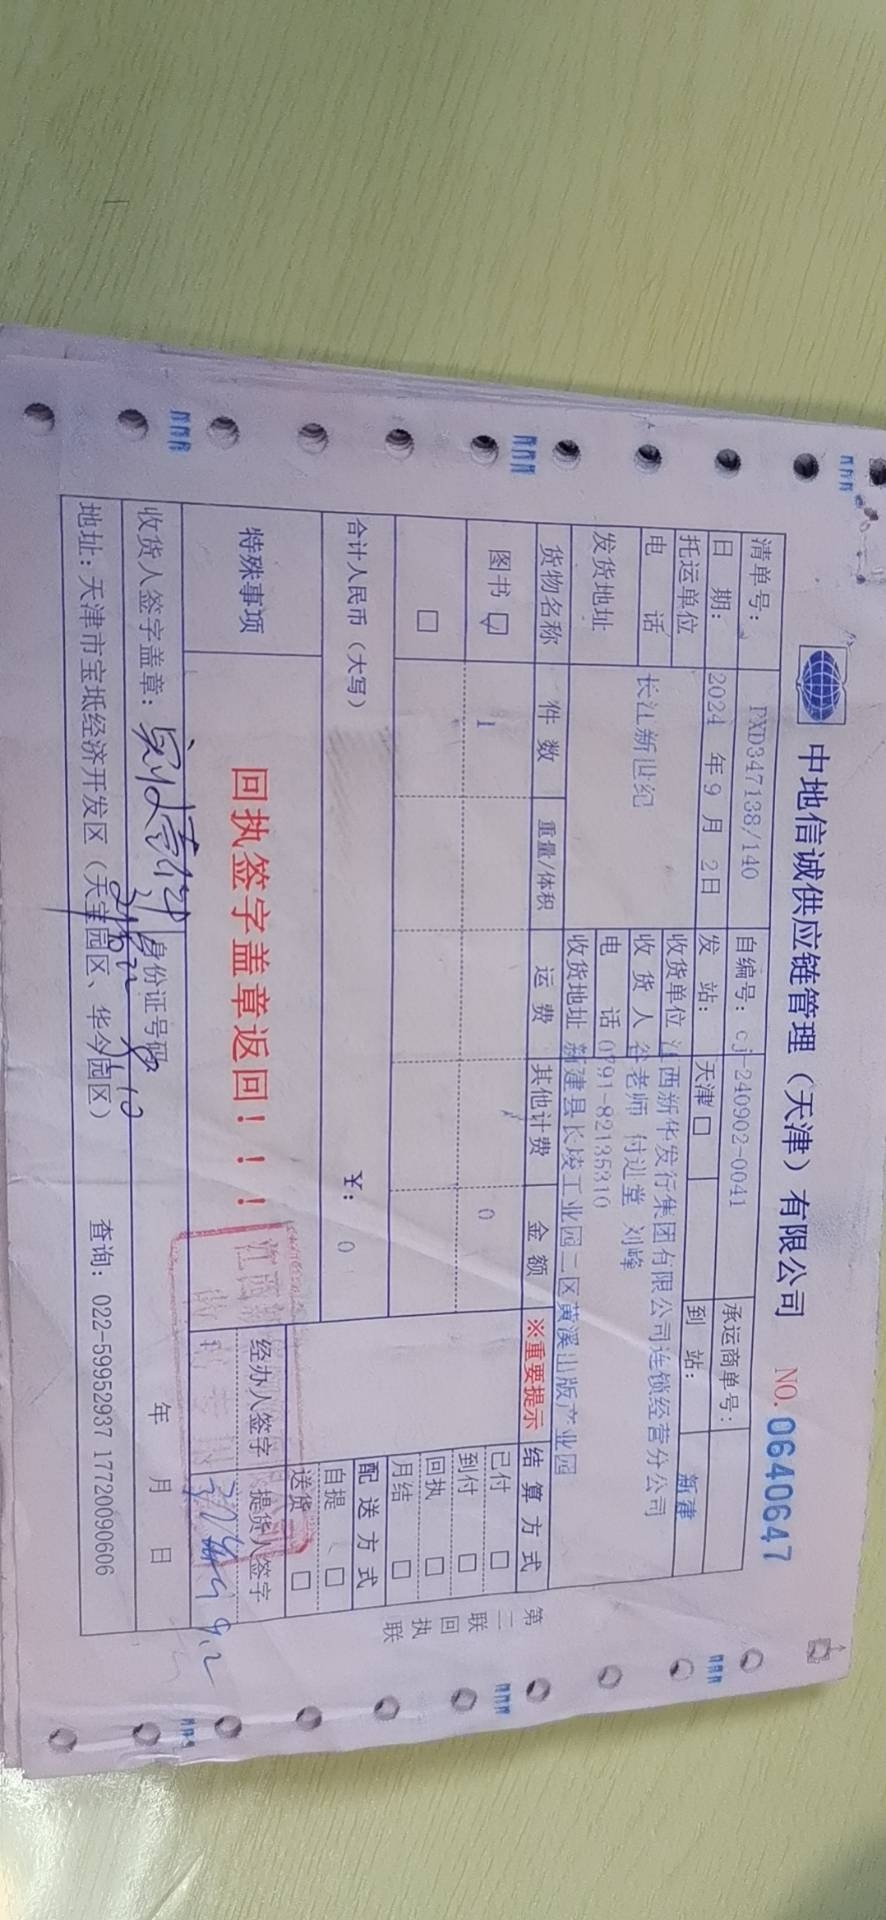 中地信诚供应链管理（天津）有限公司 NO. 0640647
清单号： PXD347138/140 自编号：cj-240902-0041 承运商单号：
日 期： 2024 年 9 月 2日 发 站： 天津 □ 到 站： 新建
托运单位 长江新世纪 收货单位 江西新华发行集团有限公司连锁经营分公司
电 话 收 货 人 谷老师 付进堂 刘峰
发货地址 电 话 0791-82135310
收货地址 新建县长堎工业园二区黄溪出版产业园
货物名称 件 数 重量/体积 运 费 其他计费 金 额 ※重要提示 结 算 方 式
图书 ☑ 1 0
□
已付 □
到付 □
回执 □
月结 □
配 送 方 式
自提 □
送货 □
合计人民币（大写） ￥： 0
特殊事项 回执签字盖章返回！！！
经办人签字 提货人签字
9.2
收货人签字盖章： 身份证号码 年 月 日
地址：天津市宝坻经济开发区（天宝园区、华今园区） 查询：022-59952937 17720090606
第二联 回执联